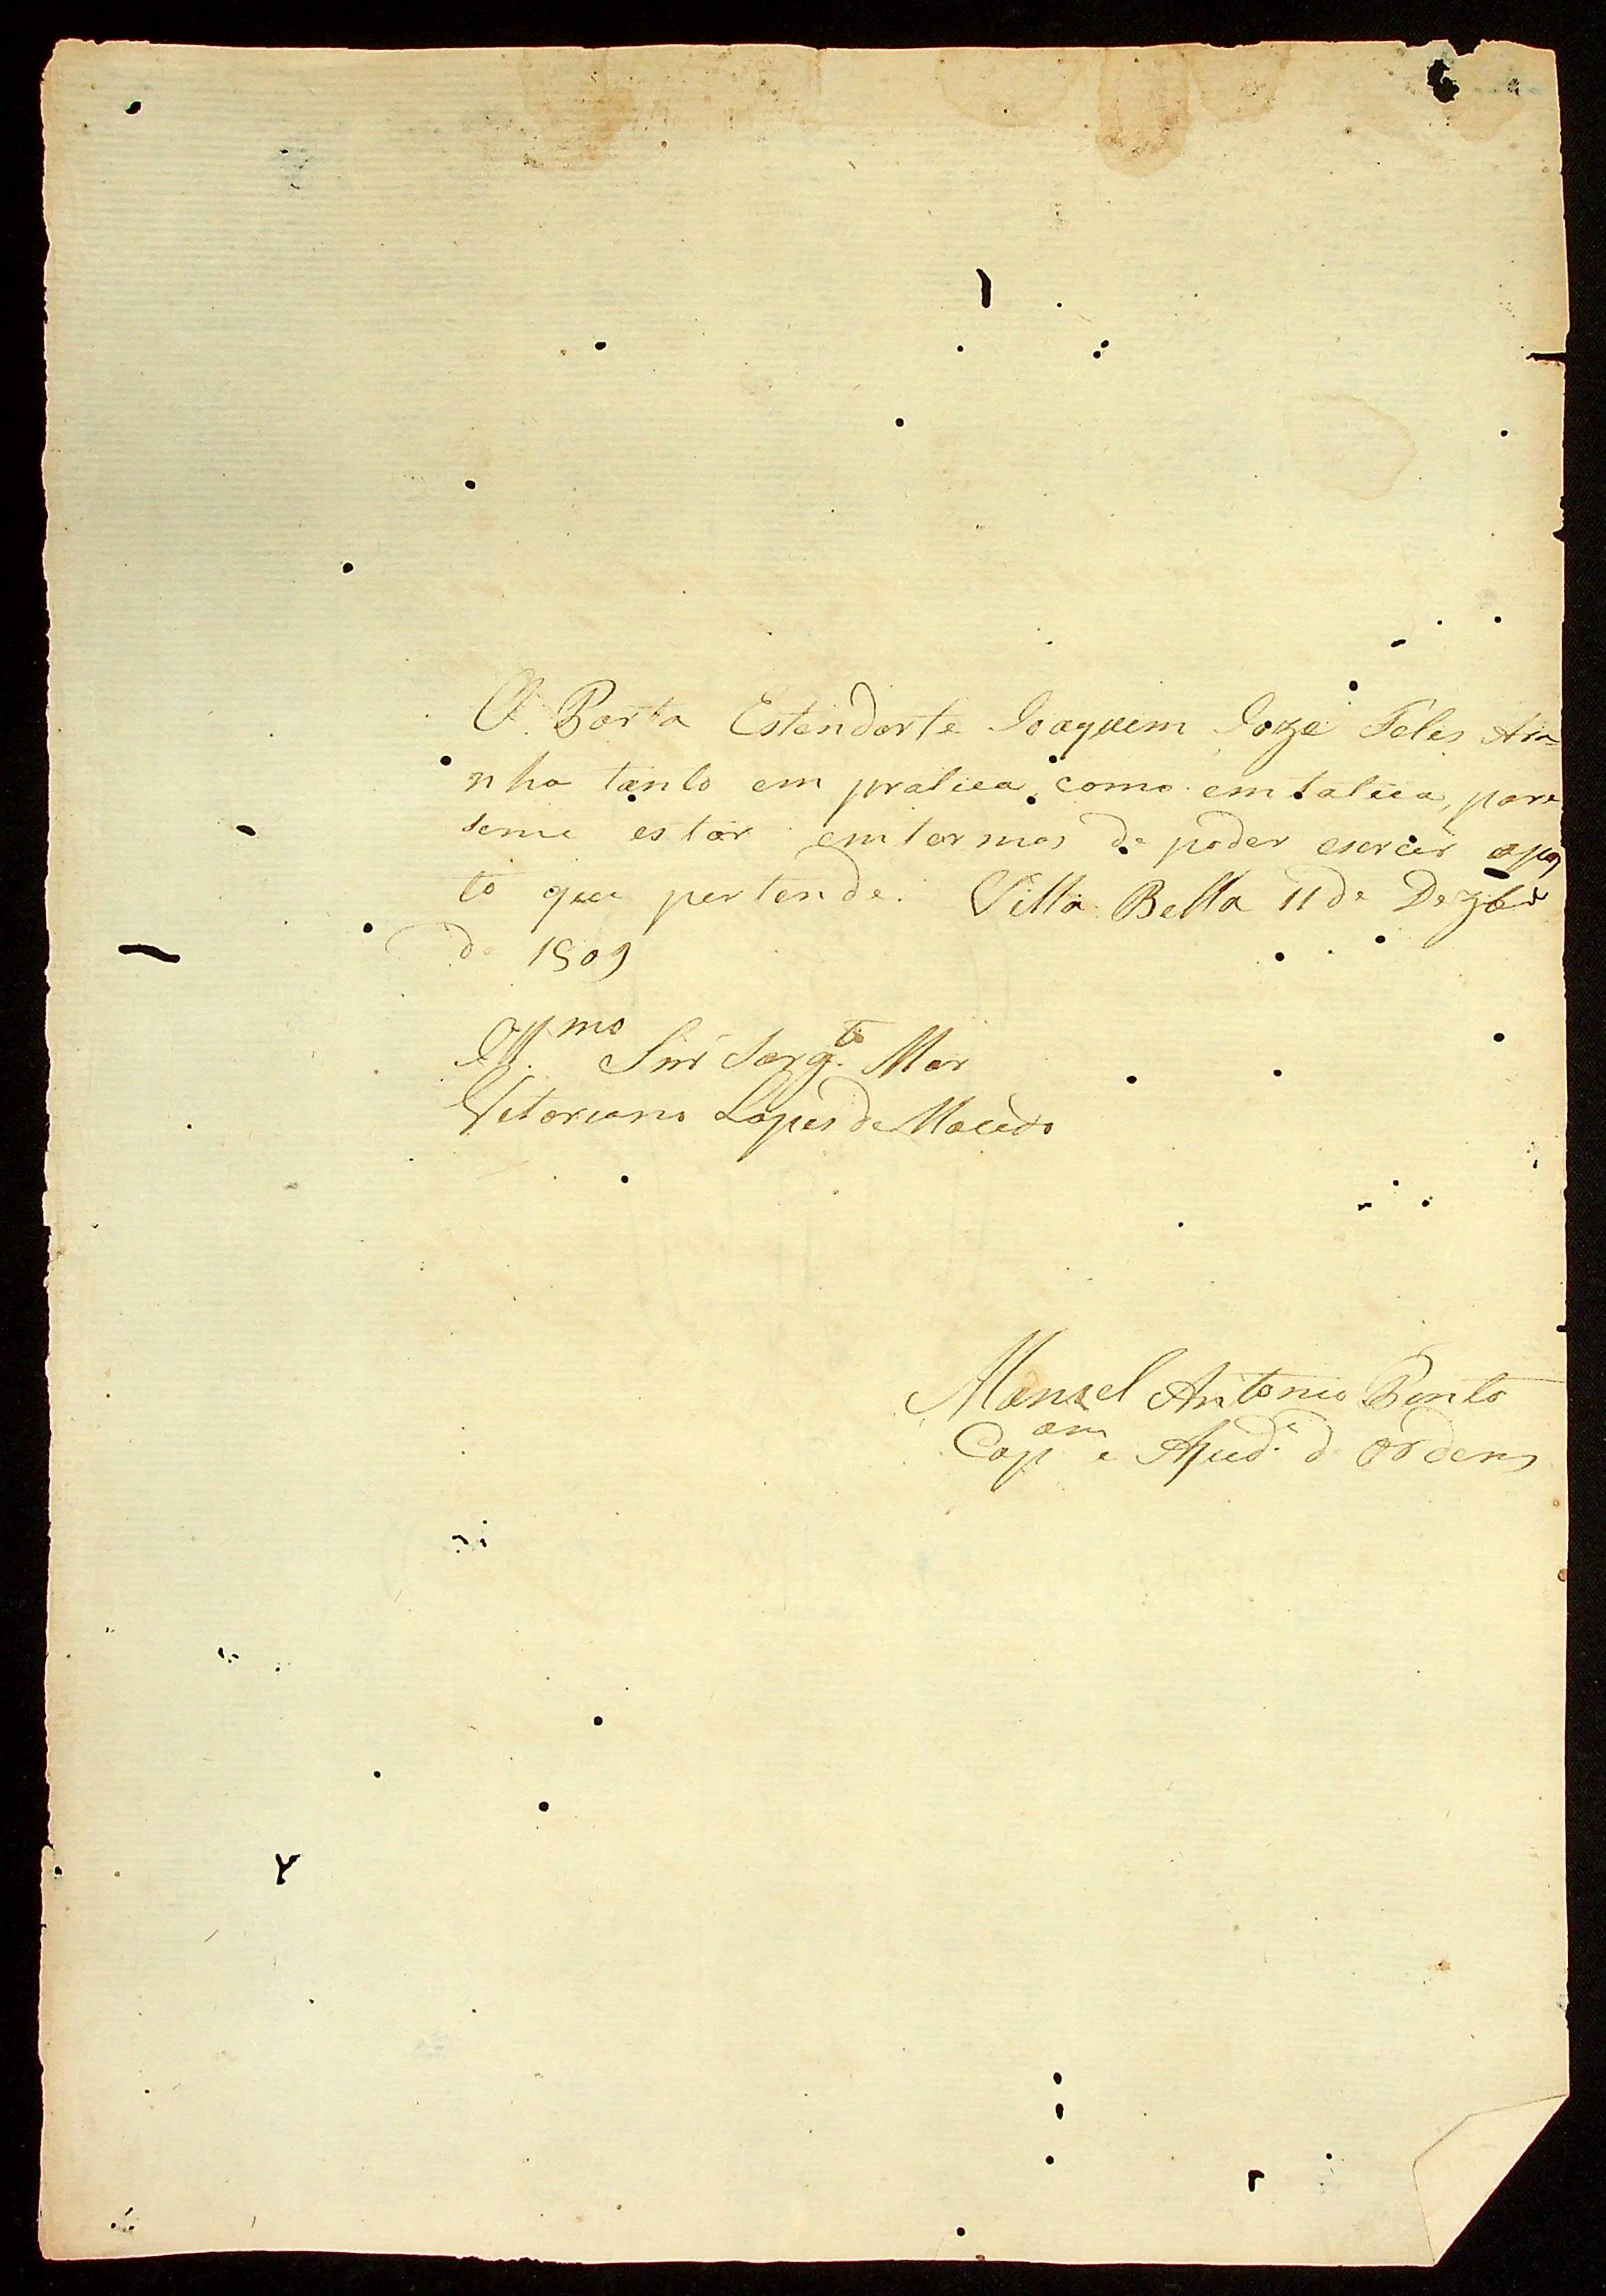 O Porta Estendarte Joaquim Joze Felis Ara=
nha tanto em pratica, como em tatica, pare
seme estar em termos de poder esercer o pos
to que pertende. Villa Bella 11 de Dezbr.o
de 1809
Ill.mo Snr Sarg.to Mor
Vetoriano Lopes de Macedo
Manoel Antonio Pinto
Cap.am e Ajud.e d Ordens